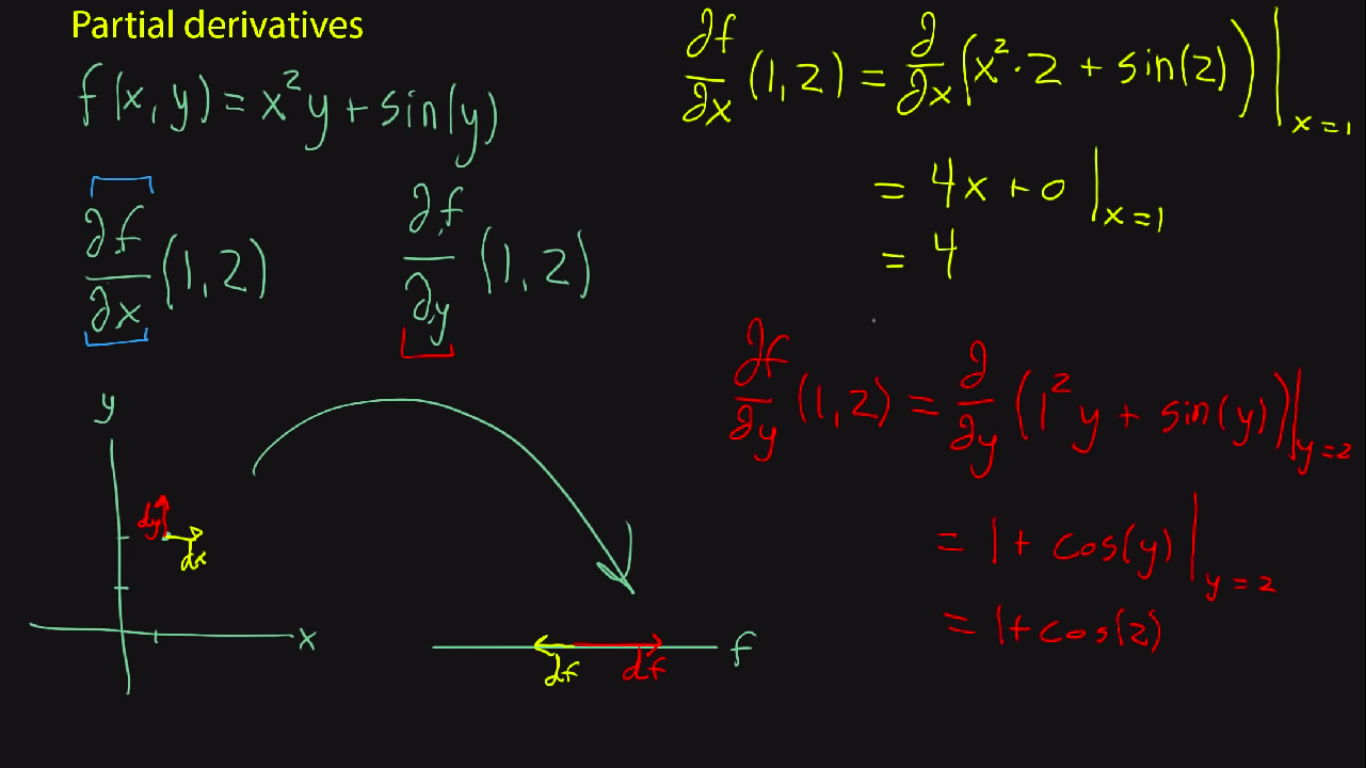 Partial derivatives
f(x, y) = x²y + sin(y)
∂f/∂x (1, 2)
∂f/∂y (1, 2)
y
dy
dx
x
df
df
f
∂f/∂x (1, 2) = ∂/∂x (x² · 2 + sin(2))|x=1
= 4x + 0 |x=1
= 4
∂f/∂y (1, 2) = ∂/∂y (1²y + sin(y))|y=2
= 1 + cos(y)|y=2
= 1 + cos(2)